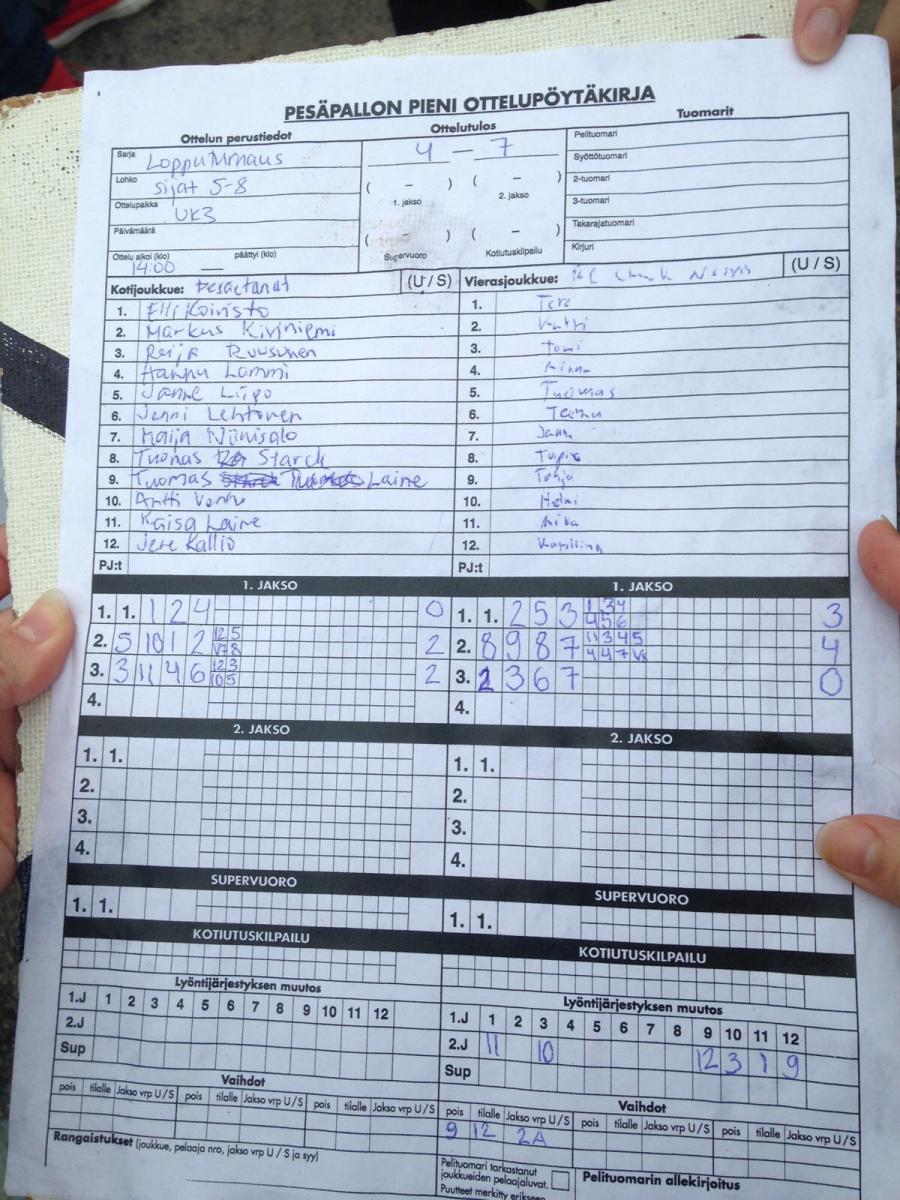 PESÄPALLON PIENI OTTELUPÖYTÄKIRJA
Ottelun perustiedot Ottelutulos Tuomarit
Sarja Lopputurnaus 4 – 7 Pelituomari
Lohko sijat 5-8 ( – ) ( – ) Syöttötuomari
1. jakso 2. jakso 2-tuomari
Ottelupaikka UK3 3-tuomari
Päivämäärä ( – ) ( – ) Takarajatuomari
Ottelu alkoi (klo) päättyi (klo) Supervuoro Kotiutuskilpailu Kirjuri
14:00 —
Kotijoukkue: (U / S) Vierasjoukkue: (U / S)
1. Elli Koivisto 1. Tero
2. Markus Kiviniemi 2.
3. Reija Ruusunen 3. Tomi
4. Hannu Lammi 4. Minna
5. Janne Liipo 5. Tuomas
6. Jenni Lehtonen 6. Teemu
7. Maija Niinisalo 7.
8. Tuomas Starck 8.
9. Tuomas Laine 9.
10. Antti 10. Helmi
11. Kaisa Laine 11. Mika
12. Jere Kallio 12.
PJ:t PJ:t
1. JAKSO 1. JAKSO
1. 1. 1 2 4 0 1. 1. 2 5 3 1 3 4 4 5 6 3
2. 5 10 1 2 12 5 V7 8 2 2. 8 9 8 7 11 3 4 5 4 4 7 4
3. 3 11 4 6 12 3 10 5 2 3. 2 3 6 7 0
4. 4.
2. JAKSO 2. JAKSO
1. 1. 1. 1.
2. 2.
3. 3.
4. 4.
SUPERVUORO SUPERVUORO
1. 1. 1. 1.
KOTIUTUSKILPAILU KOTIUTUSKILPAILU
Lyöntijärjestyksen muutos Lyöntijärjestyksen muutos
1.J 1 2 3 4 5 6 7 8 9 10 11 12 1.J 1 2 3 4 5 6 7 8 9 10 11 12
2.J 2.J 11 10 12 3 1 9
Sup Sup
Vaihdot Vaihdot
pois tilalle Jakso vrp U / S pois tilalle Jakso vrp U / S pois tilalle Jakso vrp U / S pois tilalle Jakso vrp U / S pois tilalle Jakso vrp U / S pois tilalle Jakso vrp U / S
9 12 2A
Rangaistukset (joukkue, pelaaja nro, jakso vrp U / S ja syy)
Pelituomari tarkastanut
joukkueiden pelaajaluvat. Pelituomarin allekirjoitus
Puutteet merkitty erikseen